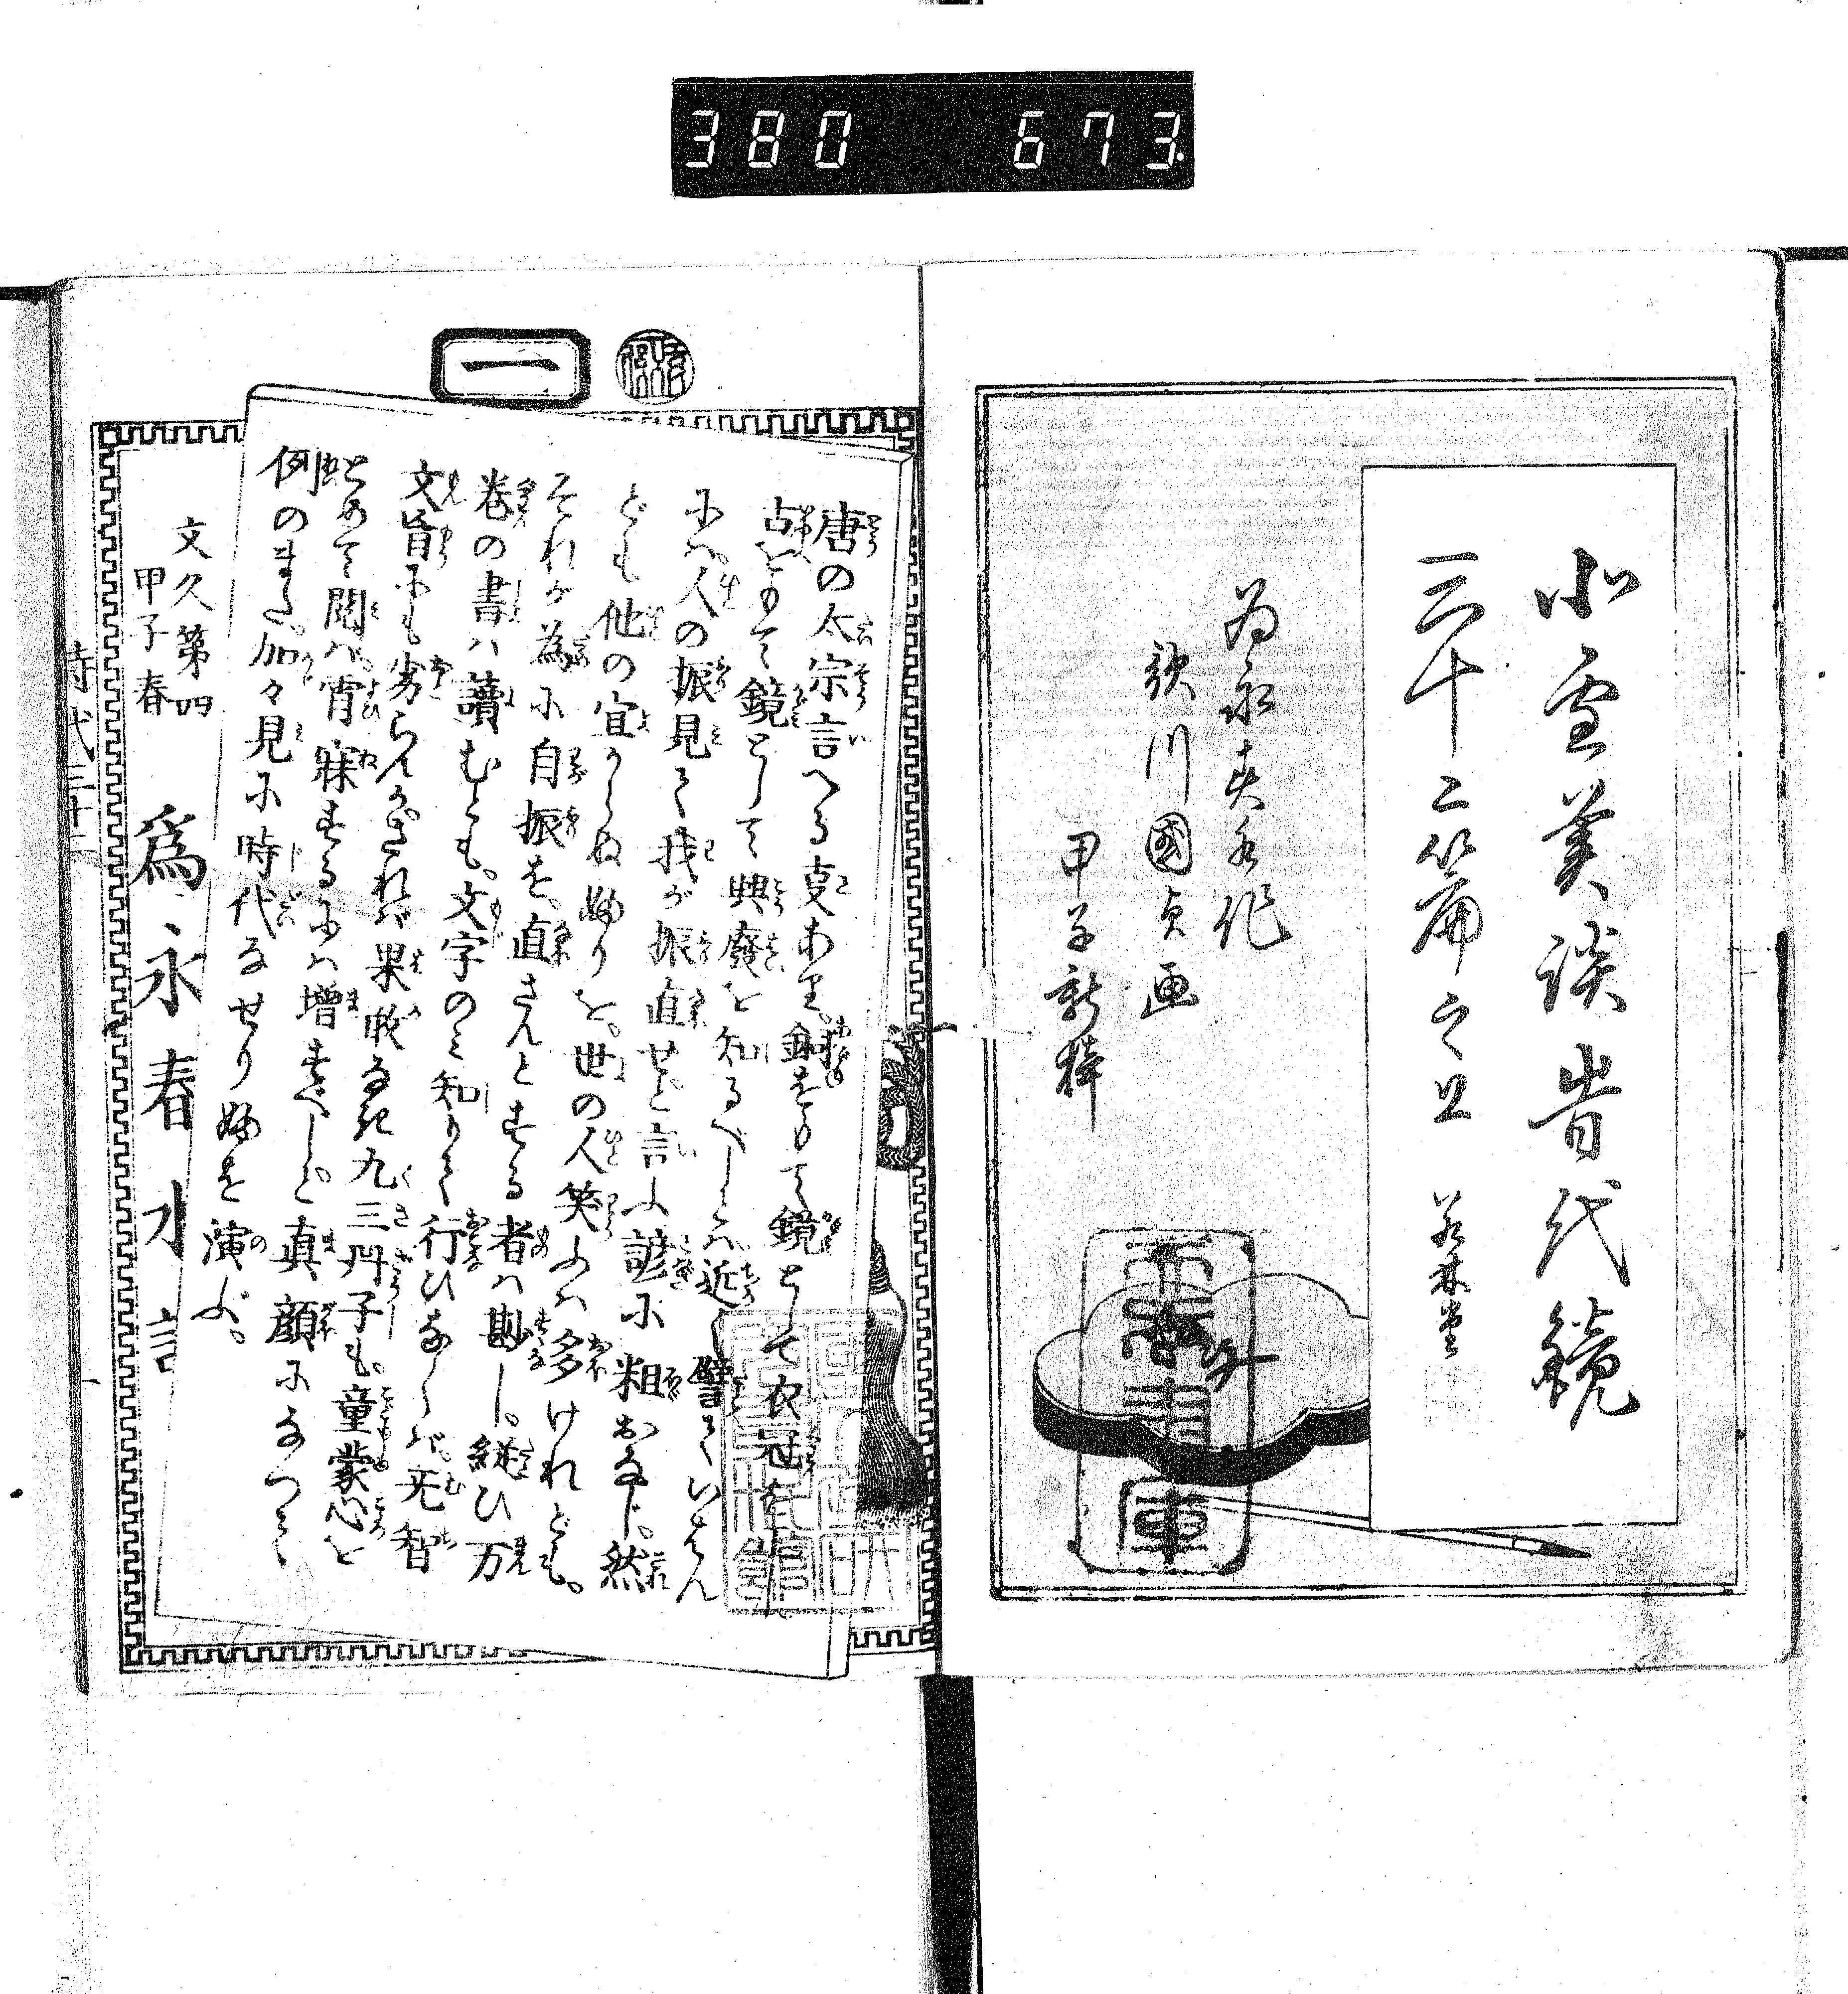 380 673.
小雪美談時代鏡
三十二篇之上 若林堂
為永春水作
歌川國貞画
甲子新梓
一
唐の太宗言へる叓あり。銅をもて鏡として衣冠を正し
古をもて鏡として興廢を知るべしとハ。近く譬ていはん
にハ。人の振見て我が振直せと言ふ諺に粗おなじ。然
ども他の宜からぬ婦りを。世の人笑ふハ多けれども。
それが為に自振を。直さんとする者ハ尠し。縦ひ万
巻の書ハ讀むとも。文字のミ知りて行ひなくバ。无智
文盲にも劣らんか。されバ果敢なき九三冊子も。童蒙心を
とめて閲バ。宵寐するにハ増すべしと。真顔になつて
例のまた。加々見に時代なせり婦を演ぶ。
文久第四
甲子春
爲永春水言
時代三十二